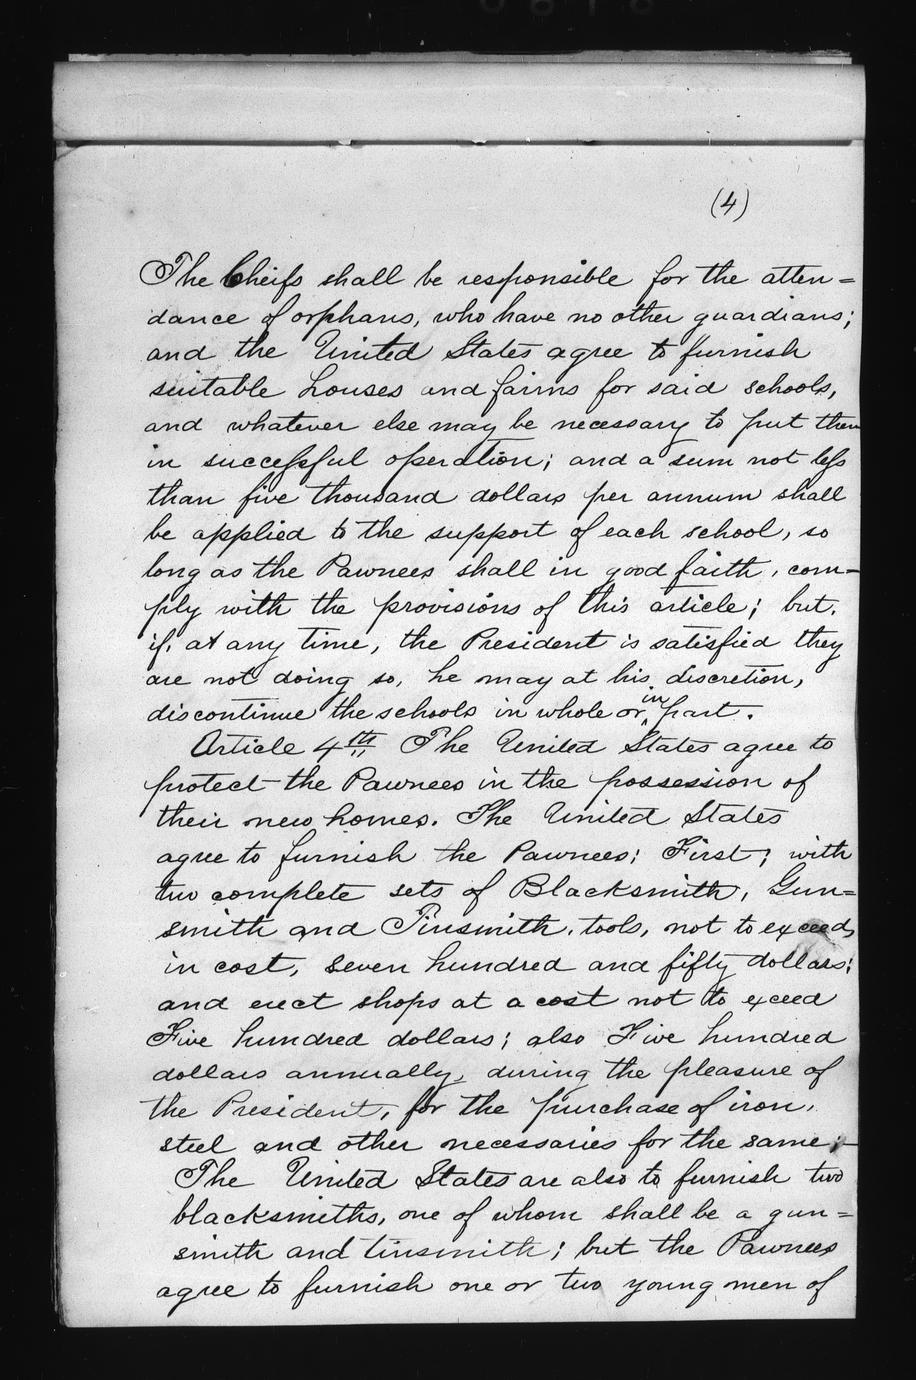 (4)
The Cheifs shall be responsible for the atten=
dance of orphans, who have no other guardians;
and the United States agree to furnish
suitable houses and farms for said schools,
and whatever else may be necessary to put them
in successful operation; and a sum not less
than five thousand dollars per annum shall
be applied to the support of each school, so
long as the Pawnees shall in good faith, com-
ply with the provisions of this article; but,
if, at any time, the President is satisfied they
are not doing so, he may at his discretion,
discontinue the schools in whole or in part.
Article 4th The United States agree to
protect the Pawnees in the possession of
their new homes. The United States
agree to furnish the Pawnees; First; with
two complete sets of Blacksmith, Gun=
smith and Tinsmith, tools, not to exceed,
in cost, seven hundred and fifty dollars;
and erect shops at a cost not to exceed
Five hundred dollars; also Five hundred
dollars annually, during the pleasure of
the President, for the purchase of iron,
steel and other necessaries for the same;-
The United States are also to furnish two
blacksmiths, one of whom shall be a gun=
smith and tinsmith; but the Pawnees
agree to furnish one or two young men of